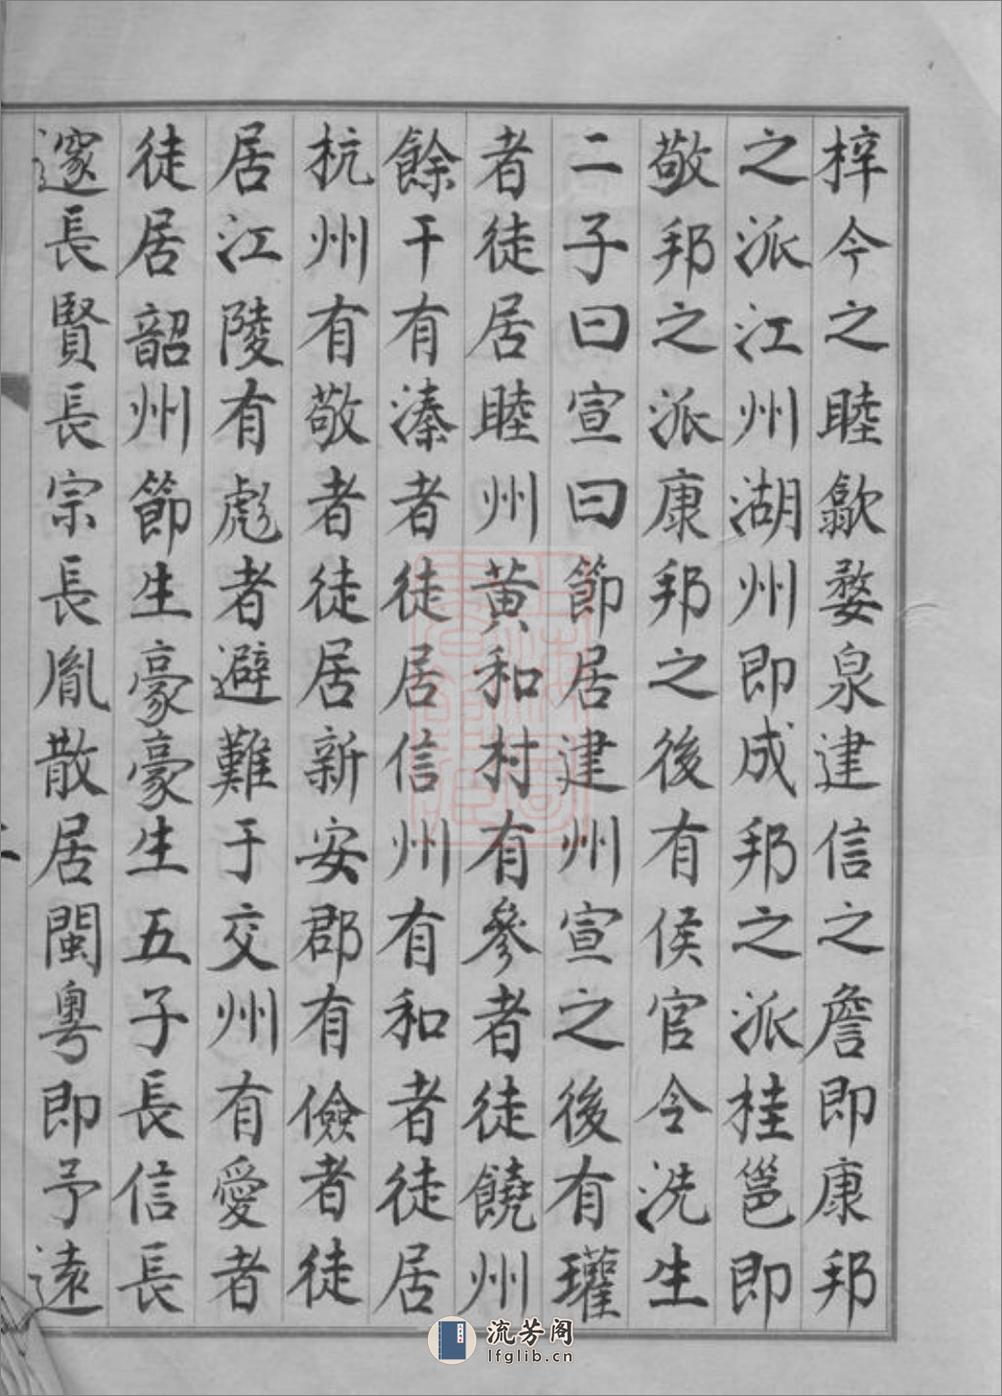 梓今之睦歙婺泉建信之詹即康邦
之派江州湖州即成邦之派桂邕即
敬邦之派康邦之後有侯官令洗生
二子曰宣曰節居建州宣之後有瓘
者徒居睦州黄和村有參者徒饒州
餘干有溱者徒居信州有和者徒居
杭州有敬者徒居新安郡有儉者徒
居江陵有彪者避難于交州有愛者
徒居韶州節生豪豪生五子長信長
邃長賢長宗長胤散居閩粵即予遠
流芳阁
lfglib.cn